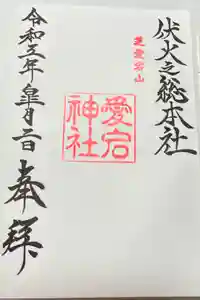 伏火之総本社
芝愛宕山
愛宕
神社
奉拝
令和五年皐月二日